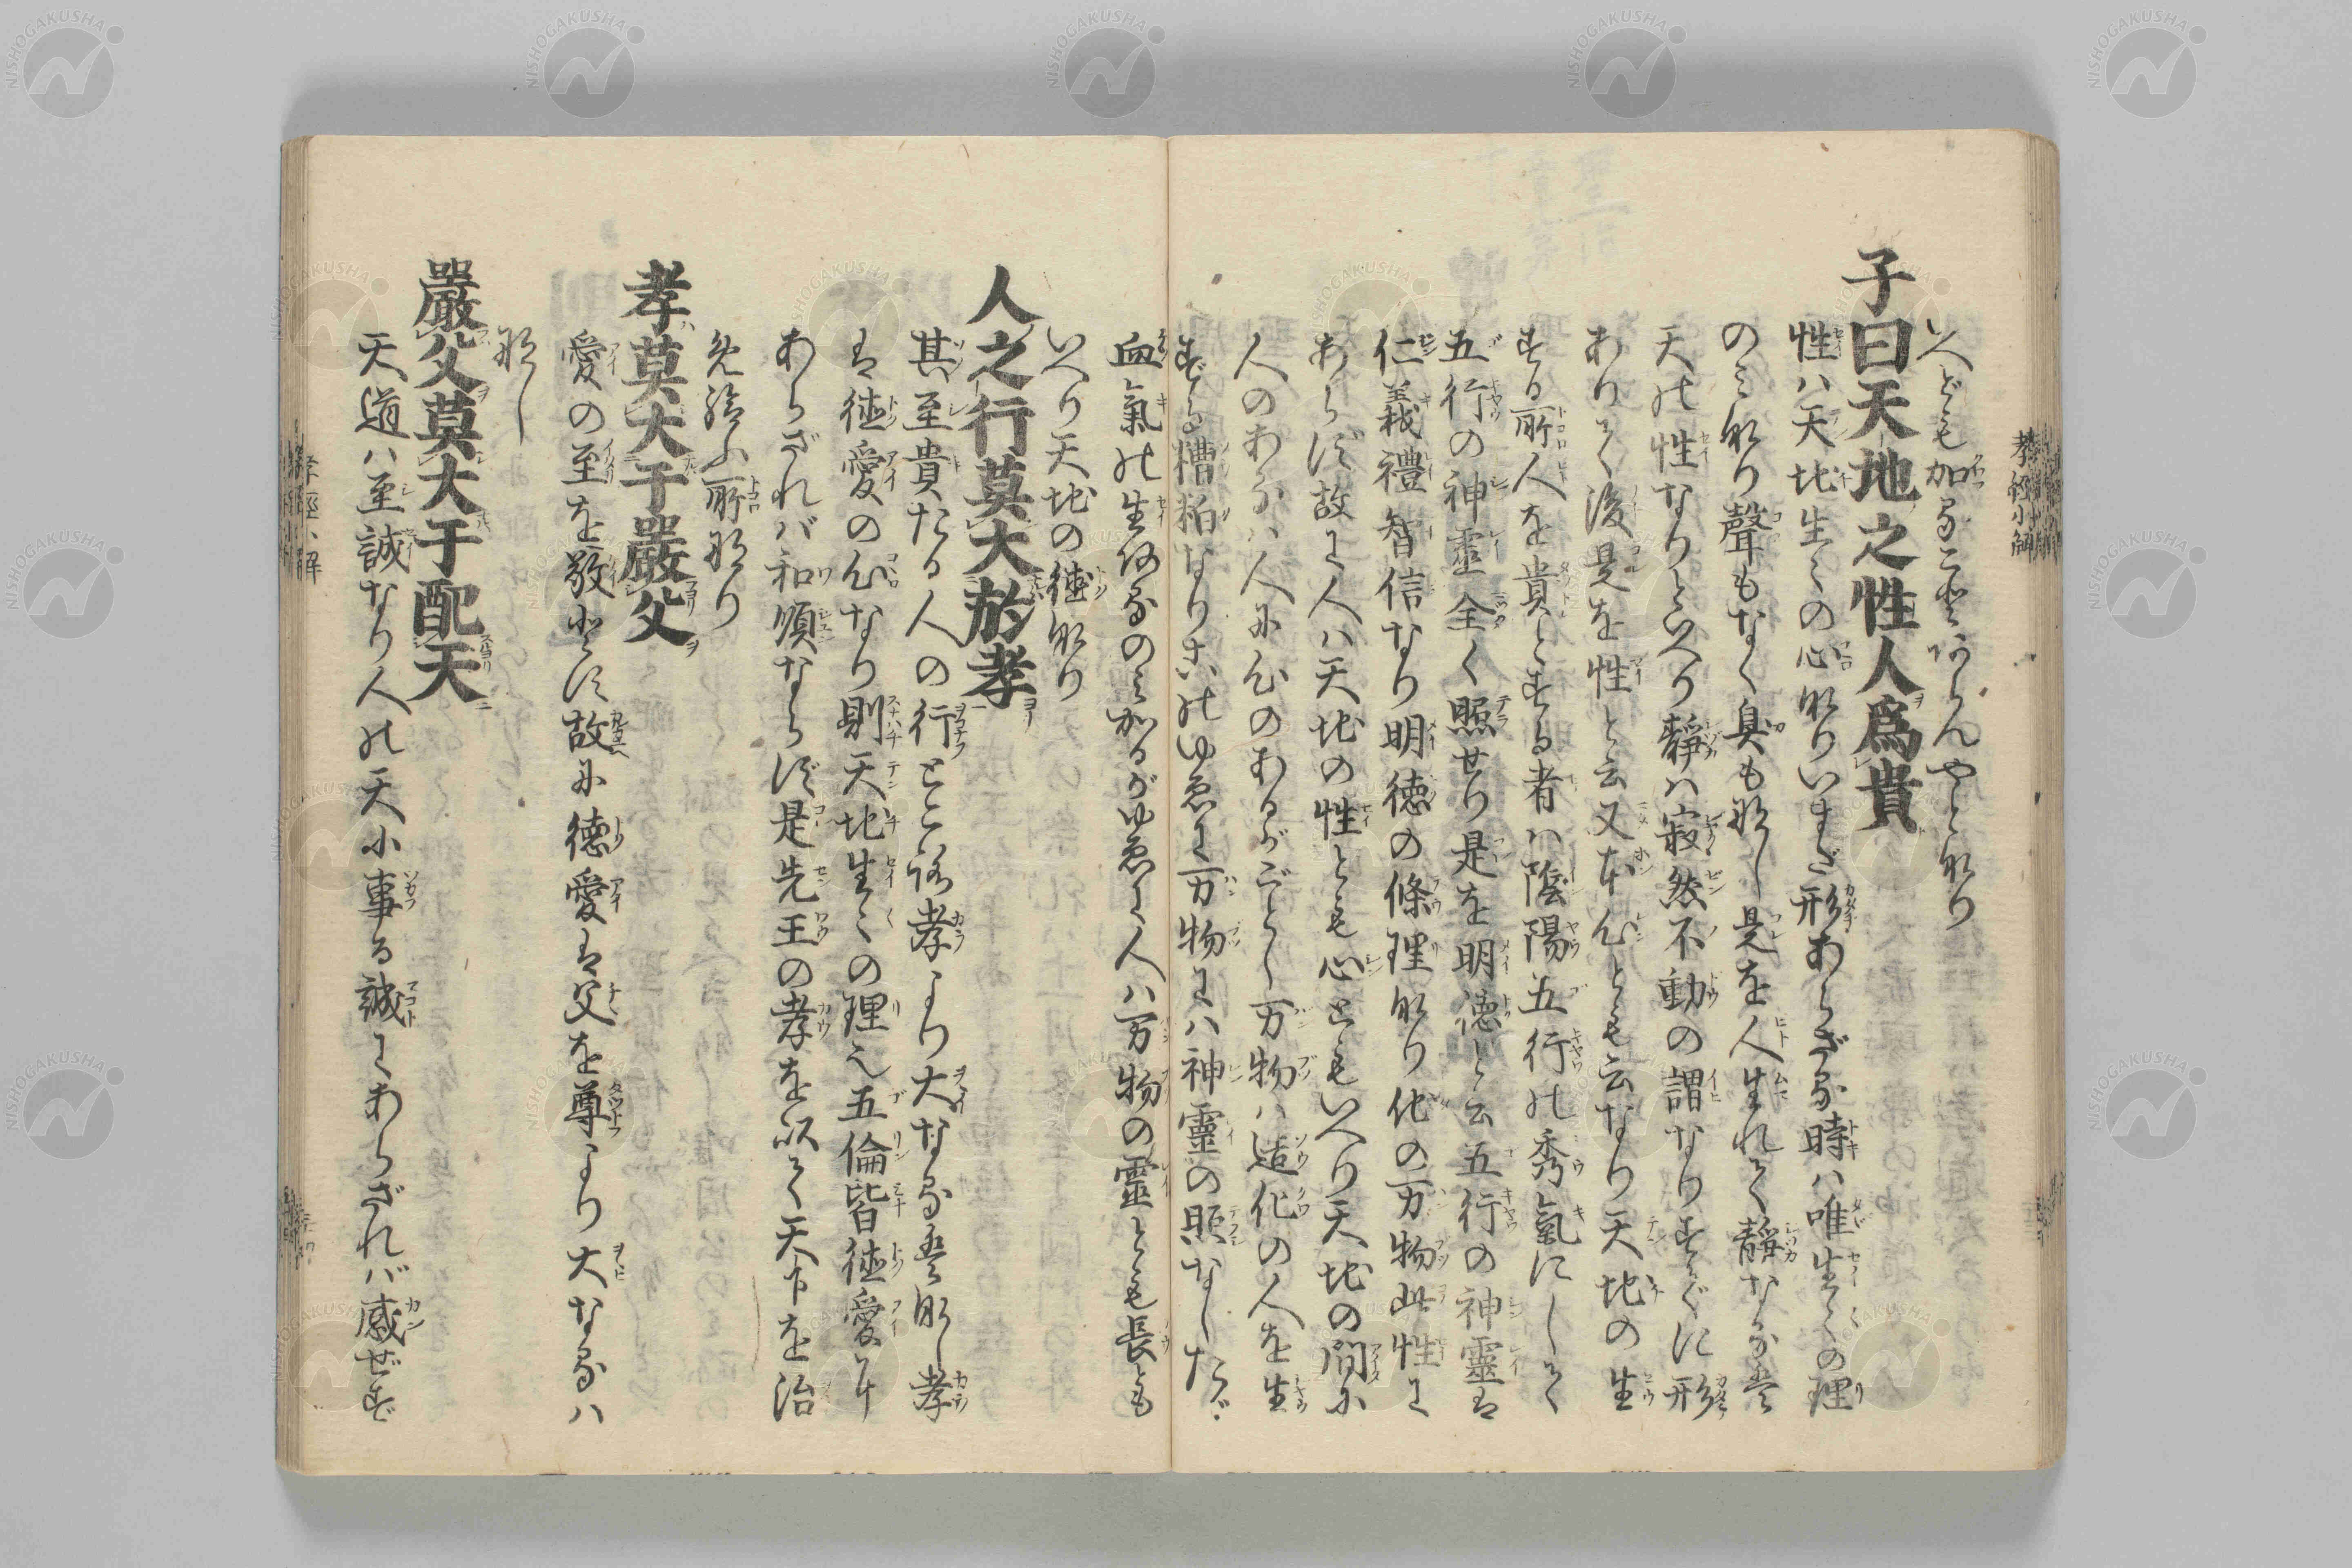 いへども加る事あらんやと也
子曰天地之性人爲貴
性ハ天地生〻の心也いまだ形あらざる時ハ唯生〻の理
のミ也聲もなく臭も那し是を人生れて靜なるは
天の性なりといへり靜ハ寂然不動の謂なりすでに形
ありて後是を性と云又本心とも云なり天地の生
する所人を貴しとする者ハ陰陽五行の秀氣にして
五行の神靈全く照せり是を明德と云五行の神靈は
仁義禮智信なり明德の條理也化の万物此性に
あらず故に人ハ天地の性とも心ともいへり天地の間に
人のあるハ人に心のあるがごとし万物ハ造化の人を生
ずる糟粕なりこのゆゑに万物にハ神靈の照なしたゞ
血氣の生活るのミ加るがゆゑに人ハ万物の靈とも長とも
いへり天地の德也
人之行莫大於孝
其至貴たる人の行ところ孝より大なるはなし孝
は德愛の心なり則天地生〻の理也五倫皆德愛に
あらざれバ和順ならず是先王の孝を以て天下を治
め給ふ所也
孝莫大于嚴父
愛の至を敬とす故に德愛は父を尊より大なるハ
那し
嚴父莫大于配天
天道ハ至誠なり人の天に事る誠にあらざれバ感ぜず
孝經小解
NISHOGAKUSHA